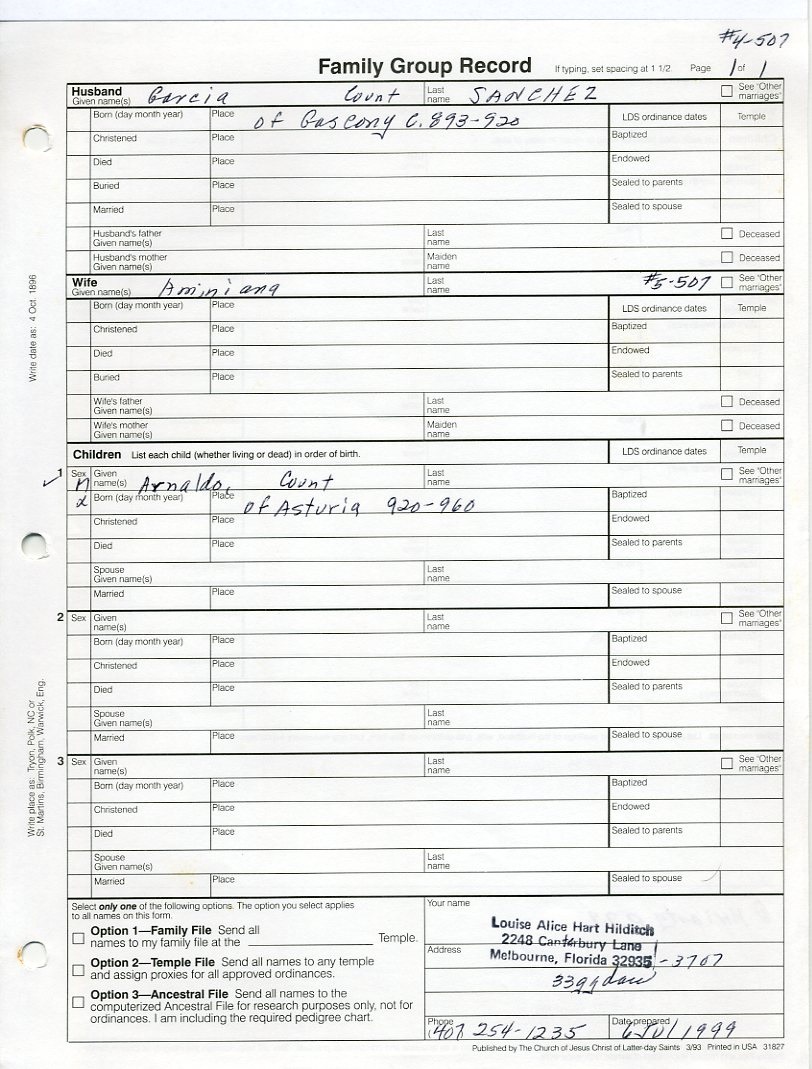 #4-507
Family Group Record If typing, set spacing at 1 1/2 Page 1 of 1
Husband Given name(s) Garcia Count Last name SANCHEZ See "Other marriages"
Born (day month year) Place of Gascony C. 893-920 LDS ordinance dates Temple
Christened Place Baptized
Died Place Endowed
Buried Place Sealed to parents
Married Place Sealed to spouse
Husband's father Given name(s) Last name Deceased
Husband's mother Given name(s) Maiden name Deceased
Wife Given name(s) Aminiana Last name #5-507 See "Other marriages"
Born (day month year) Place LDS ordinance dates Temple
Christened Place Baptized
Died Place Endowed
Buried Place Sealed to parents
Wife's father Given name(s) Last name Deceased
Wife's mother Given name(s) Maiden name Deceased
Children List each child (whether living or dead) in order of birth. LDS ordinance dates Temple
1 Sex M Given name(s) Arnaldo, Count Last name See "Other marriages"
Born (day month year) Place of Asturia 920-960 Baptized
Christened Place Endowed
Died Place Sealed to parents
Spouse Given name(s) Last name
Married Place Sealed to spouse
2 Sex Given name(s) Last name See "Other marriages"
Born (day month year) Place Baptized
Christened Place Endowed
Died Place Sealed to parents
Spouse Given name(s) Last name
Married Place Sealed to spouse
3 Sex Given name(s) Last name See "Other marriages"
Born (day month year) Place Baptized
Christened Place Endowed
Died Place Sealed to parents
Spouse Given name(s) Last name
Married Place Sealed to spouse
Write date as: 4 Oct. 1896
Write place as: Tryon, Polk, NC or
St. Martins, Birmingham, Warwick, Eng.
Select only one of the following options. The option you select applies
to all names on this form.
Option 1—Family File Send all
names to my family file at the Temple.
Option 2—Temple File Send all names to any temple
and assign proxies for all approved ordinances.
Option 3—Ancestral File Send all names to the
computerized Ancestral File for research purposes only, not for
ordinances. I am including the required pedigree chart.
Your name
Louise Alice Hart Hilditch
2248 Canterbury Lane
Address
Melbourne, Florida 32935-3767
Phone (407 254-1235 Date prepared 1999
Published by The Church of Jesus Christ of Latter-day Saints 3/93 Printed in USA 31827